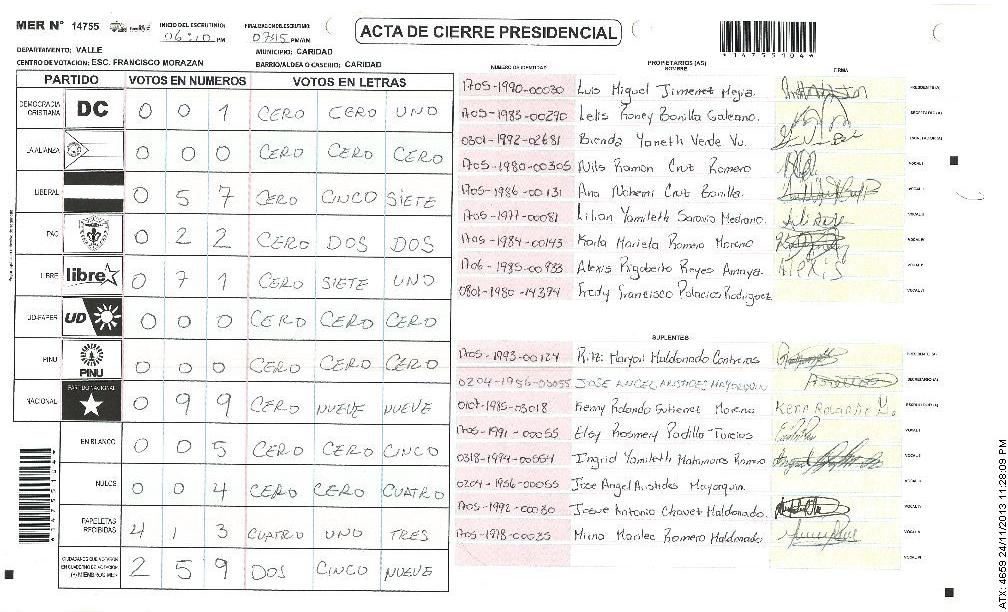 MER N° 14755
INICIO DEL ESCRUTINIO: 06:10 PM
FINALIZACION DEL ESCRUTINIO: 07:15 PM/AM
ACTA DE CIERRE PRESIDENCIAL
DEPARTAMENTO: VALLE
MUNICIPIO: CARIDAD
CENTRO DE VOTACION: ESC. FRANCISCO MORAZAN
BARRIO/ALDEA O CASERIO: CARIDAD
PARTIDO VOTOS EN NUMEROS VOTOS EN LETRAS
DEMOCRACIA CRISTIANA DC 0 0 1 CERO CERO UNO
LA ALIANZA 0 0 0 CERO CERO CERO
LIBERAL 0 5 7 CERO CINCO SIETE
PAC 0 2 2 CERO DOS DOS
LIBRE libre 0 7 1 CERO SIETE UNO
UD-FAPER UD 0 0 0 CERO CERO CERO
PINU PINU 0 0 0 CERO CERO CERO
NACIONAL PARTIDO NACIONAL 0 9 9 CERO NUEVE NUEVE
EN BLANCO 0 0 5 CERO CERO CINCO
NULOS 0 0 4 CERO CERO CUATRO
PAPELETAS RECIBIDAS 4 1 3 CUATRO UNO TRES
CIUDADANOS QUE VOTARON EN CUADERNO DE VOTACION (+) MIEMBROS MER 2 5 9 DOS CINCO NUEVE
NUMERO DE IDENTIDAD PROPIETARIOS (AS) NOMBRE FIRMA
1705-1990-00030 Luis Miguel Jimenez Mejia. PRESIDENTE (A)
1705-1983-00290 Lelis Roney Bonilla Galeano. SECRETARIO (A)
0301-1992-02681 Brenda Yaneth Verde Vu. ESCRUTADOR (A)
1705-1980-00305 Nils Ramon Cruz Romero VOCAL I
1705-1986-00131 Ana Nohemi Cruz Bonilla. VOCAL II
1705-1977-00081 Lilian Yamileth Saravia Medrano. VOCAL III
1705-1984-00143 Karla Mariela Romero Moreno VOCAL IV
1706-1985-00933 Alexis Rigoberto Reyes Amaya. Alexis VOCAL V
0801-1980-14374 Fredy Francisco Palacios Rodriguez VOCAL VI
SUPLENTES
1705-1993-00124 Ritzi Maryori Maldonado Contreras PRESIDENTE (A)
0204-1956-00055 JOSE ANGEL ARISTIDES MAYORQUIN SECRETARIO (A)
0107-1985-03018 Kenny Rolando Gutierrez Moreno ESCRUTADOR (A)
1705-1991-00055 Elsy Rosmery Padilla Turcios VOCAL I
0318-1994-00554 Ingrid Yamileth Matamoros Romero VOCAL II
0204-1956-00055 Jose Angel Aristides Mayorquin. VOCAL III
1705-1992-00030 Josue Antonio Chavez Maldonado. VOCAL IV
1705-1978-00035 Mirna Marilec Romero Maldonado VOCAL V
VOCAL VI
ATX: 4659 24/11/2013 11:28:09 PM